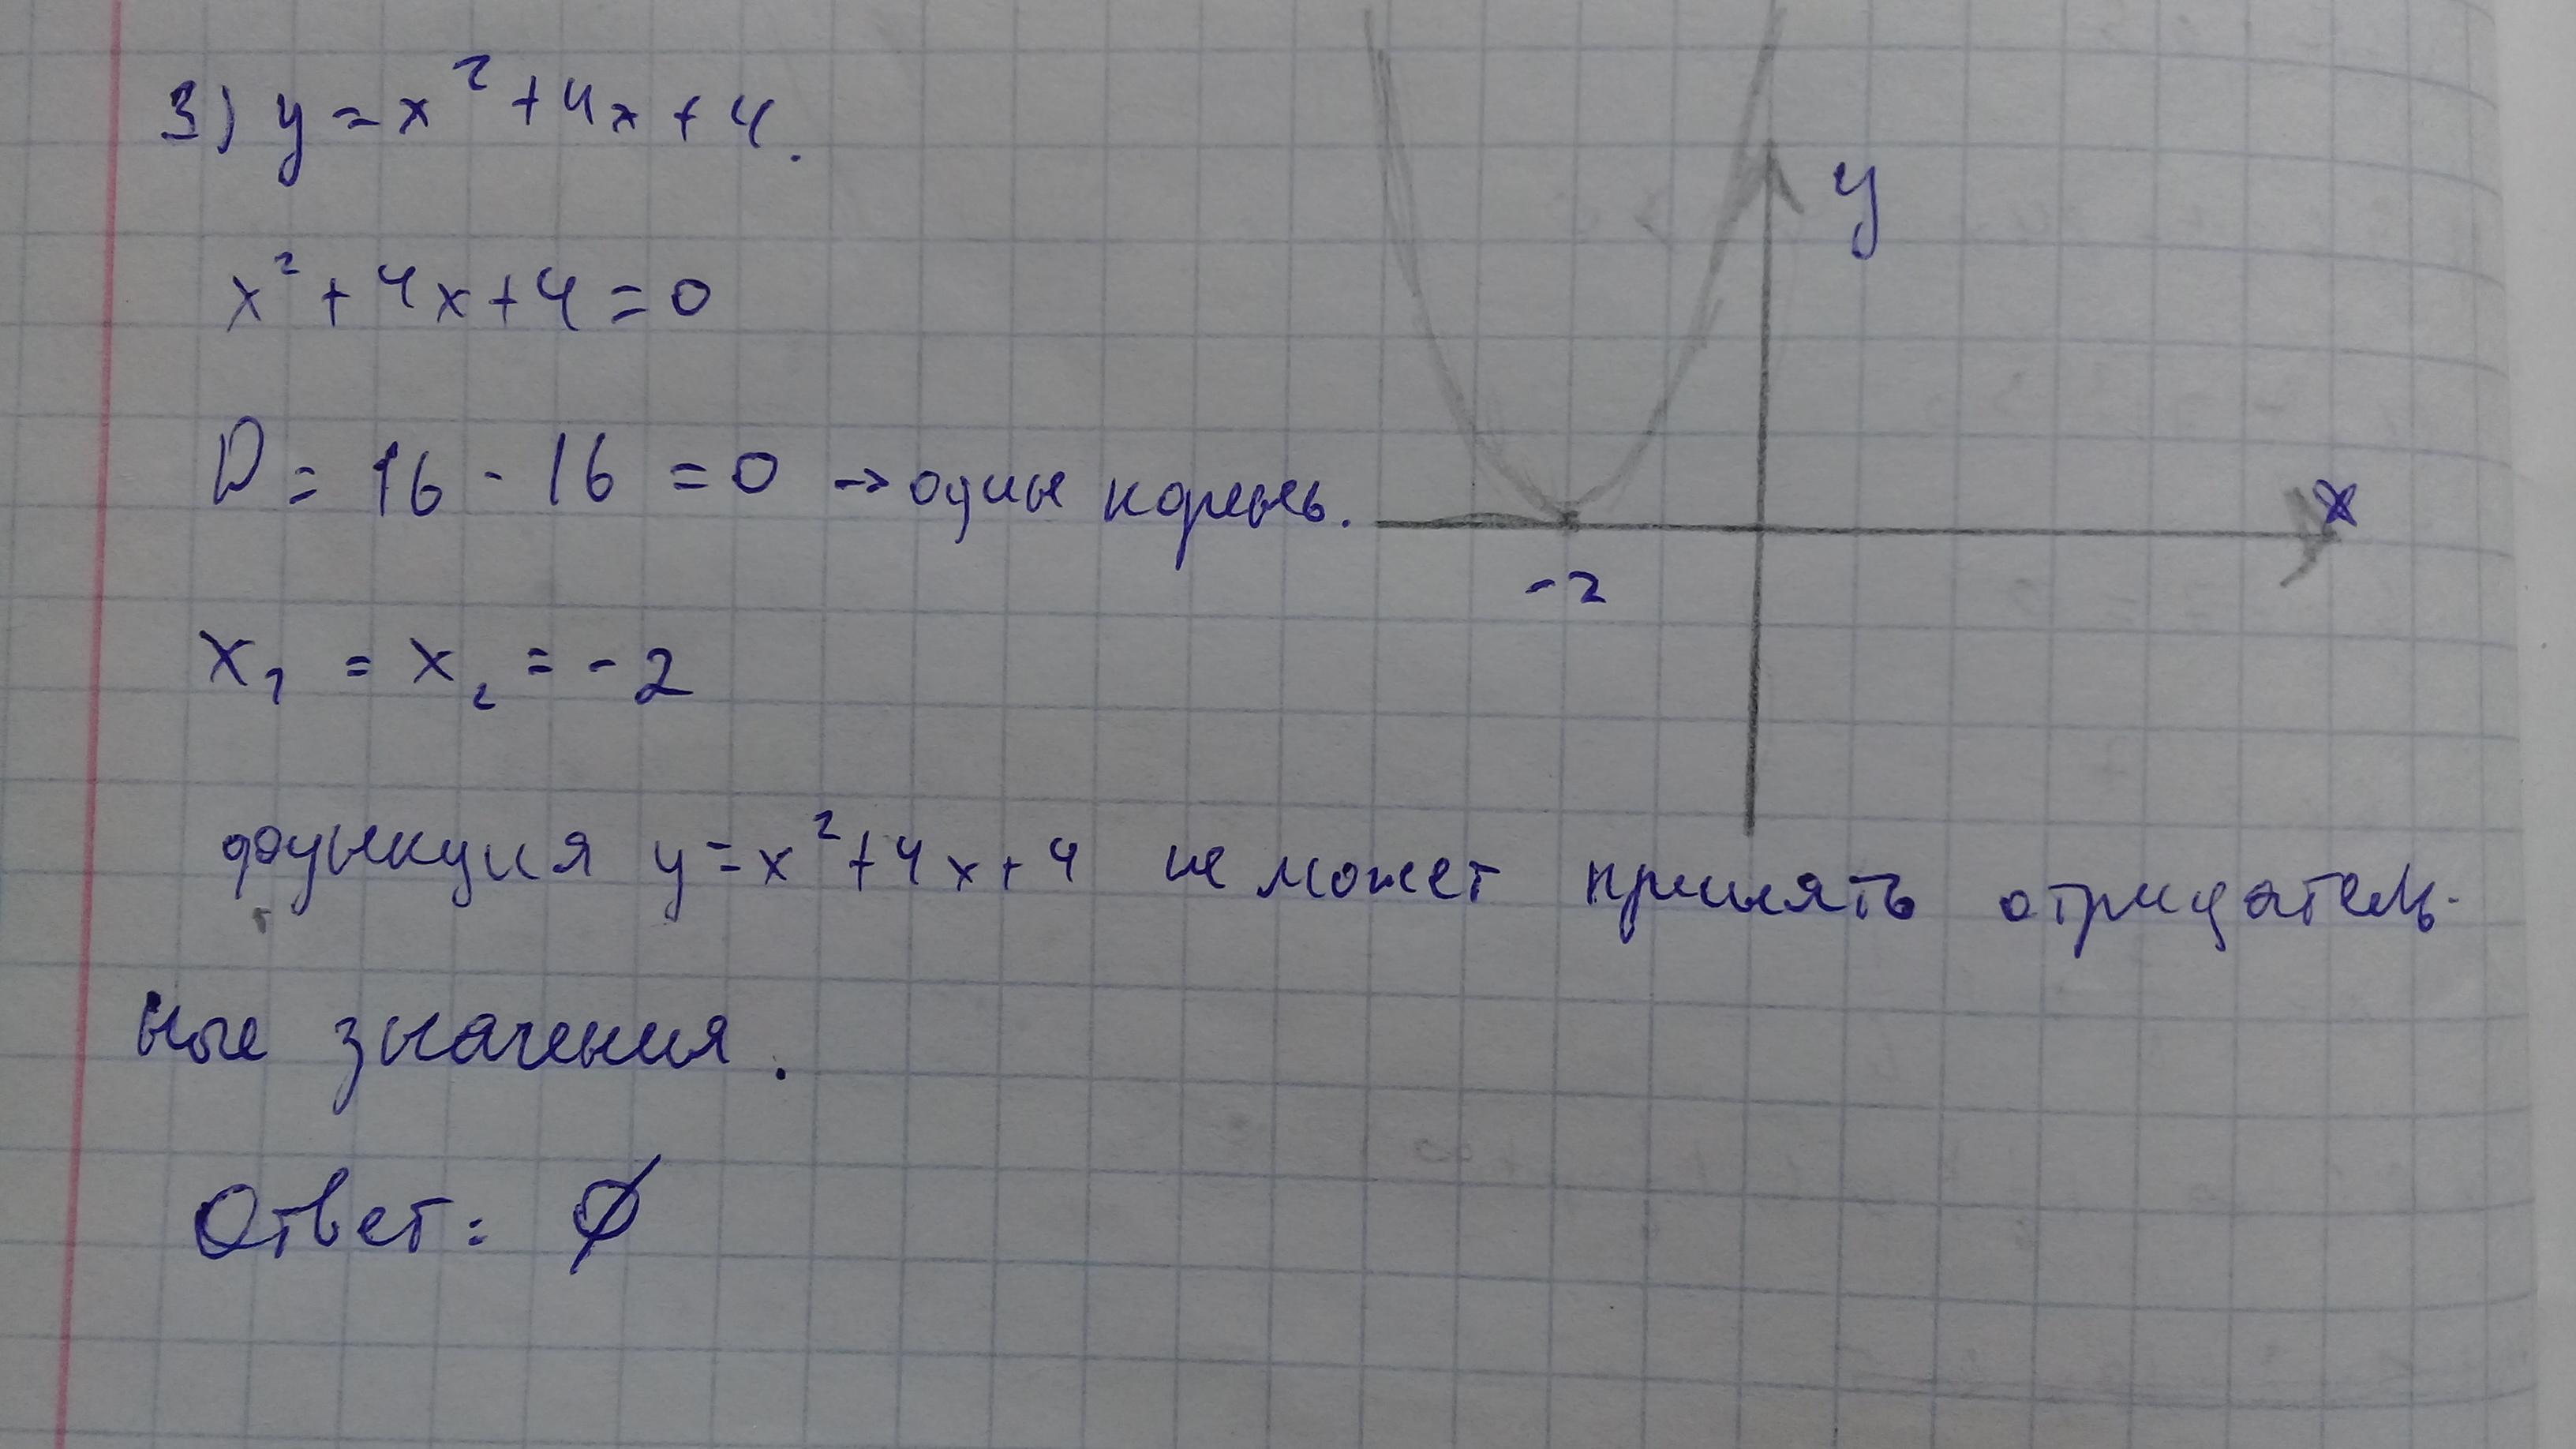 3) y = x² + 4x + 4.
x² + 4x + 4 = 0
D = 16 - 16 = 0 → один корень.
x₁ = x₂ = -2
y
x
-2
функция y = x² + 4x + 4 не может принять отрицатель-
ные значения.
Ответ: Ø